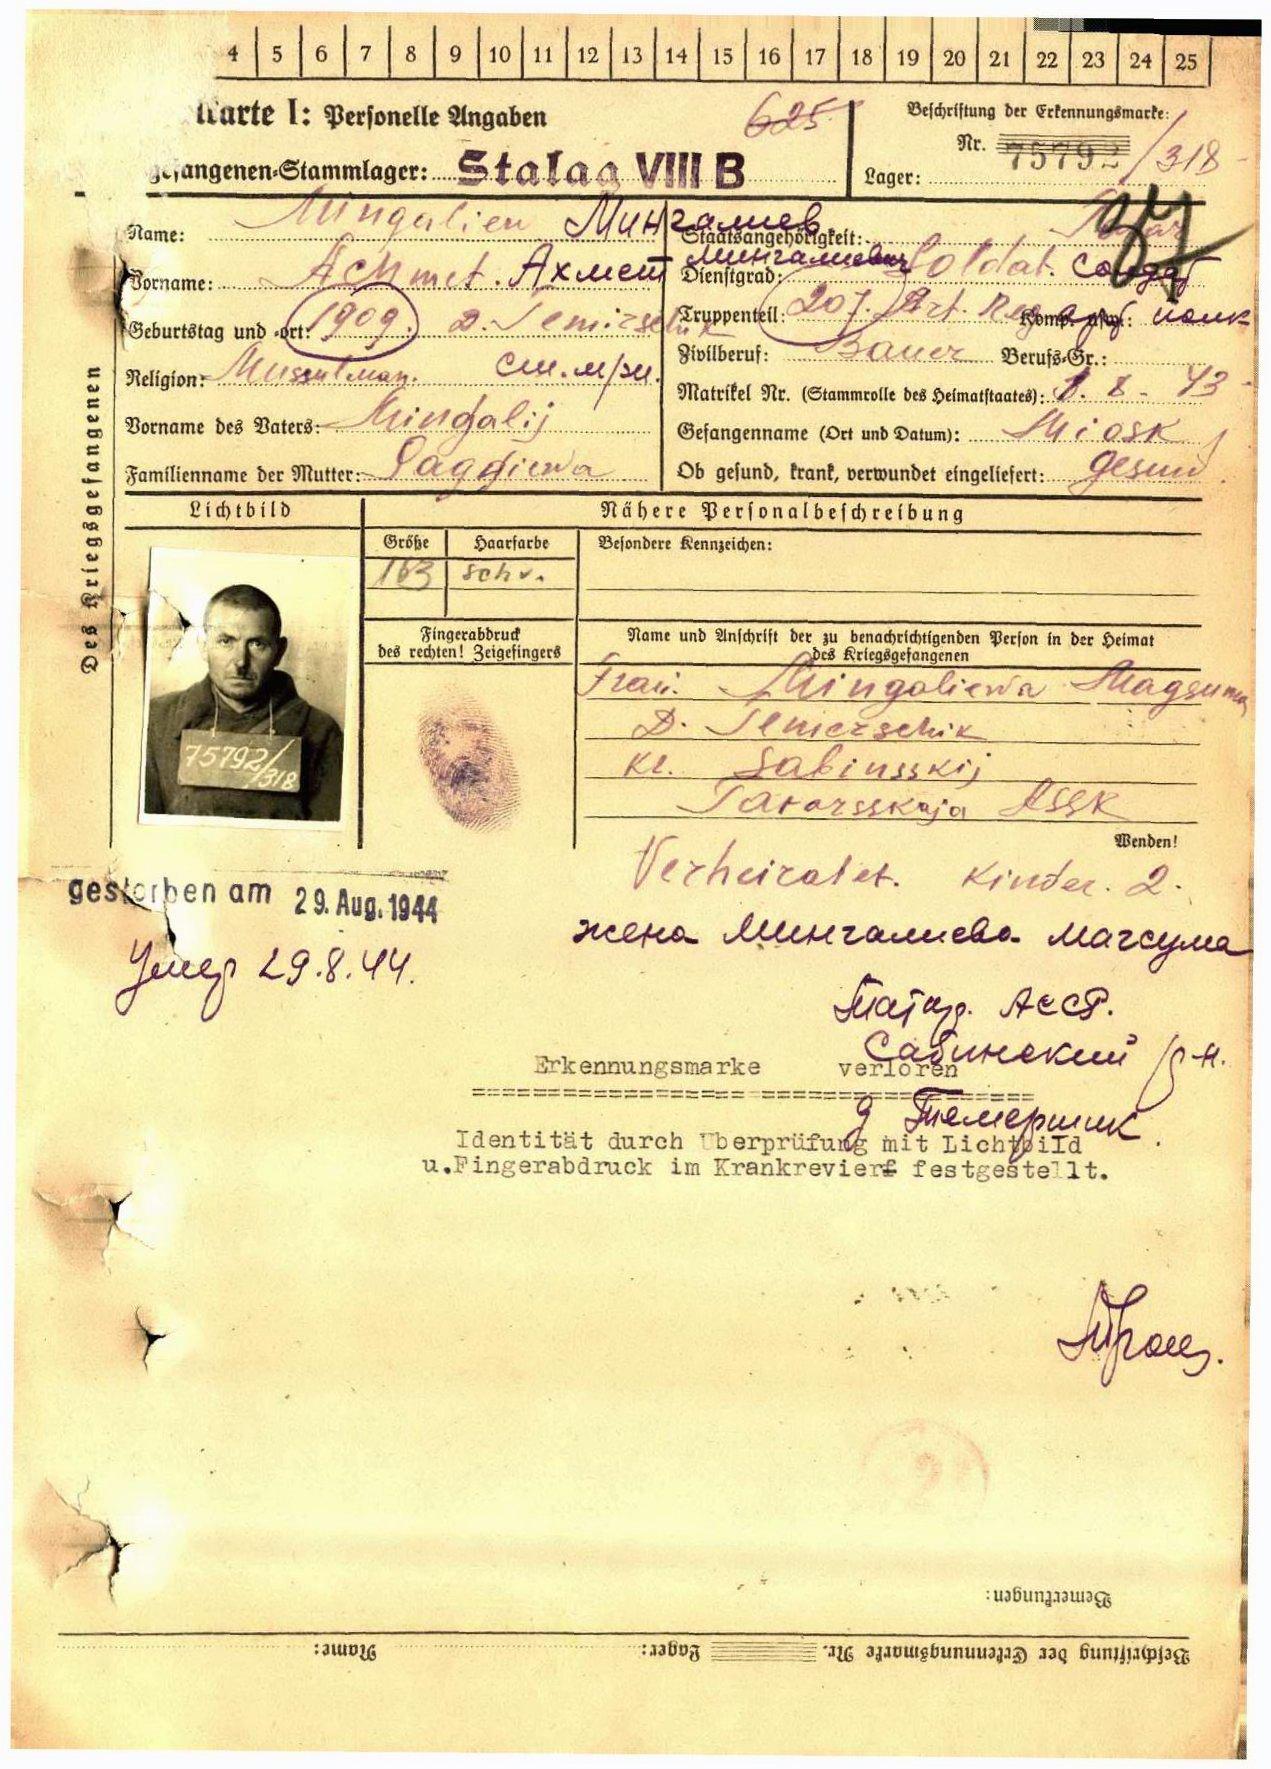 4 5 6 7 8 9 10 11 12 13 14 15 16 17 18 19 20 21 22 23 24 25
Karte I: Personelle Angaben
625
Beschriftung der Erkennungsmarke:
Nr. 75792/318
gefangenen-Stammlager: Stalag VIII B
Lager:
Name: Mingaliew Мингалиев
Staatsangehörigkeit:
Vorname: Achmet. Ахмет Мингалиевич
Dienstgrad: Soldat. солдат
Geburtstag und -ort: 1909. D. Temirschik
Truppenteil: 207. Art. Reg. Komp. usw.: арт полк
Zivilberuf: Bauer Berufs-Gr.:
Religion: Musulman.
Matrikel Nr. (Stammrolle des Heimatstaates): 1. 8 - 43
Vorname des Vaters: Mingalij
Gefangenname (Ort und Datum): Miosk
Familienname der Mutter:
Ob gesund, krank, verwundet eingeliefert: gesund
Des Kriegsgefangenen
Lichtbild
Nähere Personalbeschreibung
Größe Haarfarbe
Besondere Kennzeichen:
163 schw.
Fingerabdruck
des rechten! Zeigefingers
Name und Anschrift der zu benachrichtigenden Person in der Heimat
des Kriegsgefangenen
Frau. Mingaliewa Magsuma
D. Temerschik
Kr. Sabinsskij
Tatarsskaja ASSR
75792/318
Wenden!
Verheiratet. Kinder. 2.
gestorben am 29. Aug. 1944
жена Мингалиева Магсума
Умер 29.8.44.
Татар. АССР.
Сабинский р-н.
Erkennungsmarke verloren
д Темершик.
Identität durch Uberprüfung mit Lichtbild
u.Fingerabdruck im Krankrevier festgestellt.
Bemerkungen:
Beschriftung der Erkennungsmarke Nr. Lager: Name: